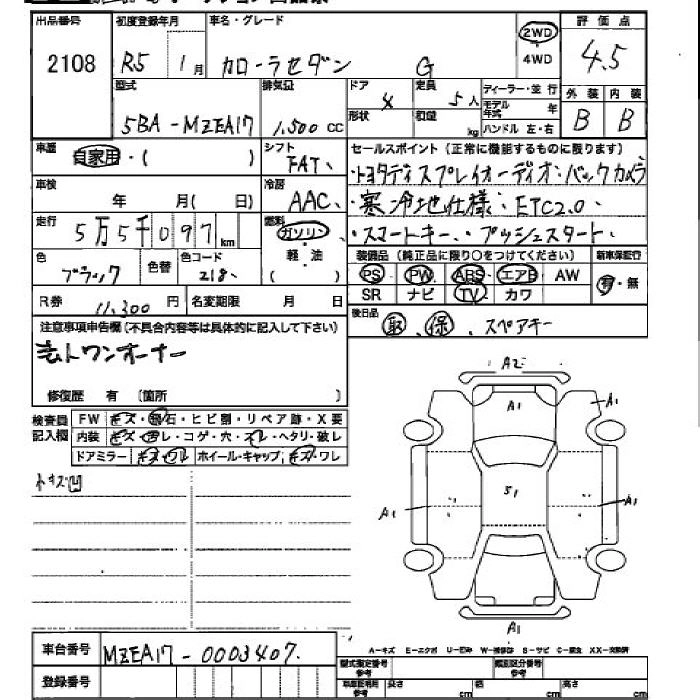 出品番号 初度登録年月 車名・グレード 2WD 評価点
2108 R5 1月 カローラセダン G 4WD 4.5
型式 排気量 ドア 4 定員 5人 ディーラー・並行 外装 内装
5BA-MZEA17 1,500cc 形状 積量 kg モデル年式 年 B B
ハンドル 左・右
車歴 自家用・( ) シフト FAT セールスポイント(正常に機能するものに限ります)
・トヨタディスプレイオーディオ・バックカメラ
車検 年 月(日) 冷房 AAC ・寒冷地仕様・ETC2.0・
走行 5万5千097km 燃料 ガソリン ・スマートキー・プッシュスタート・
軽・油
( )
色 ブラック 色替 色コード 218 装備品(純正品に限り○をつけてください) 新車保証行
PS PW ABS エアB AW 有・無
R券 11,300円 名変期限 月 日 SR ナビ TV カワ
注意事項申告欄(不具合内容等は具体的に記入して下さい) 後日品 取、保、スペアキー
元トワンオーナー
修復歴 有 〔箇所 〕
検査員 FW キズ・飛石・ヒビ割・リペア跡・X要
記入欄 内装 キズ・ヨゴレ・コゲ・穴・スレ・ヘタリ・破レ
ドアミラー キズ・ワレ ホイール・キャップ キズ・ワレ
A2
A1
A1
小キズ凹
S1
A1
A1
A1
車台番号 MZEA17-0003407
A-キズ E-エクボ U-凹み W-補修跡 S-サビ C-腐食 XX-交換済
登録番号
型式指定番号 参考 類別区分番号 参考
車庫証明用 参考 長さ cm 幅 cm 高さ cm